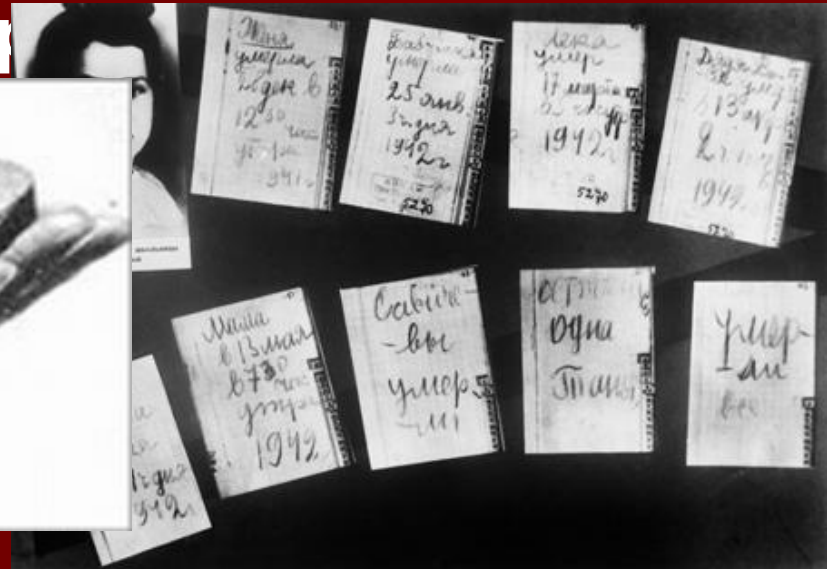 Женя
умерла
28 дек в
12 30 час
утра
1941 г
Бабушка
умерла
25 янв.
3 ч дня
1942 г
5270
Лека
умер
17 марта
1942 г
5270
Дядя
13 апр
2 ч
1942 г
Мама
в 13 мая
в 7 30 час
утра
1942
Савиче-
-вы
умер-
-ли
осталась
одна
Таня
умер-
-ли
все
дня